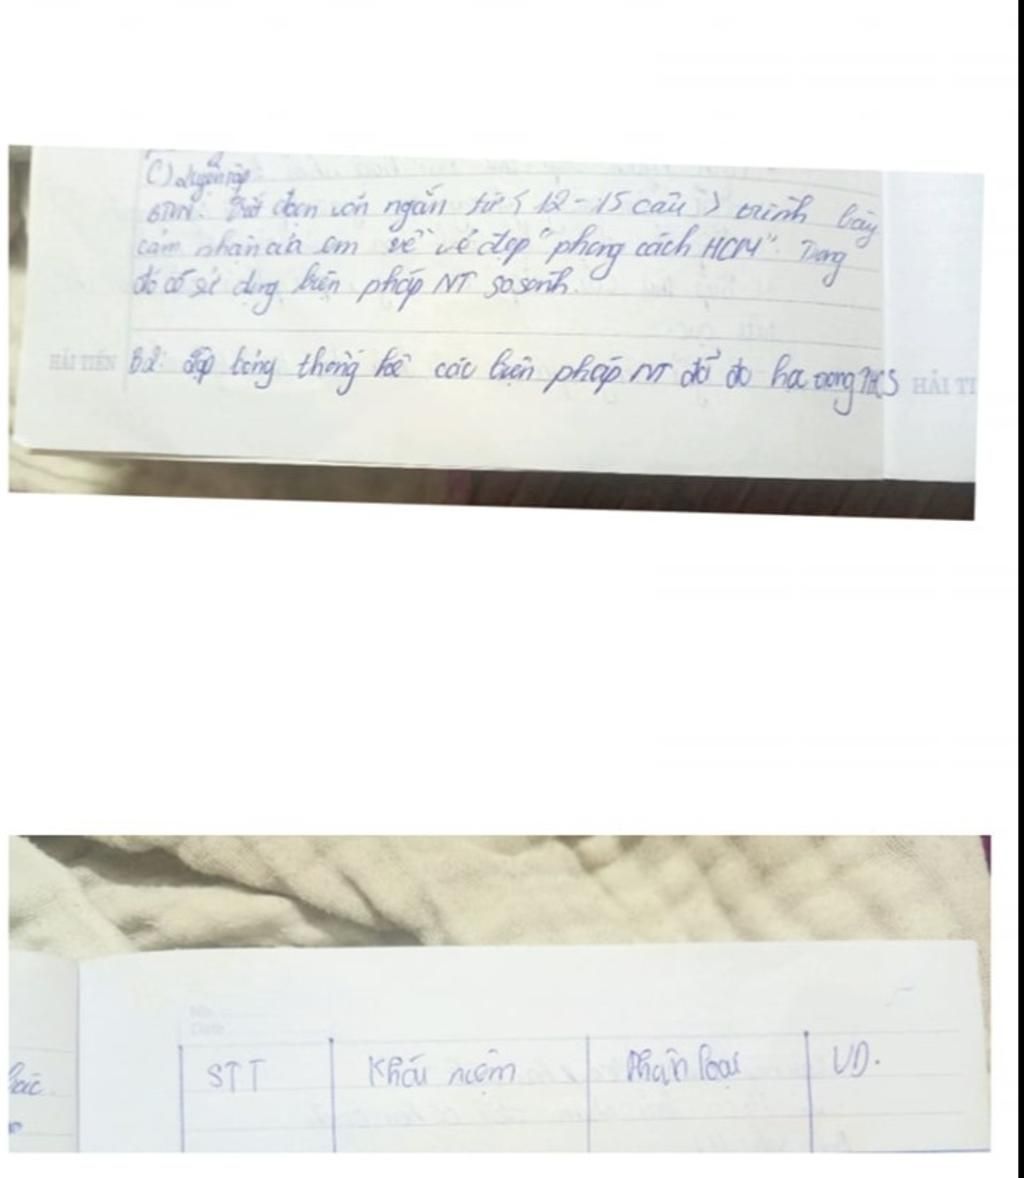 C) Luyện tập
BTVN: Viết đoạn văn ngắn từ < 12-15 câu > trình bày
cảm nhận của em về vẻ đẹp "phong cách HCM". Trong
đó có sử dụng biện pháp NT so sánh.
HẢI TIẾN B2: Lập bảng thống kê các biện pháp NT đã học trong THCS HẢI TI
No.
Date
STT Khái niệm Phân loại VD.